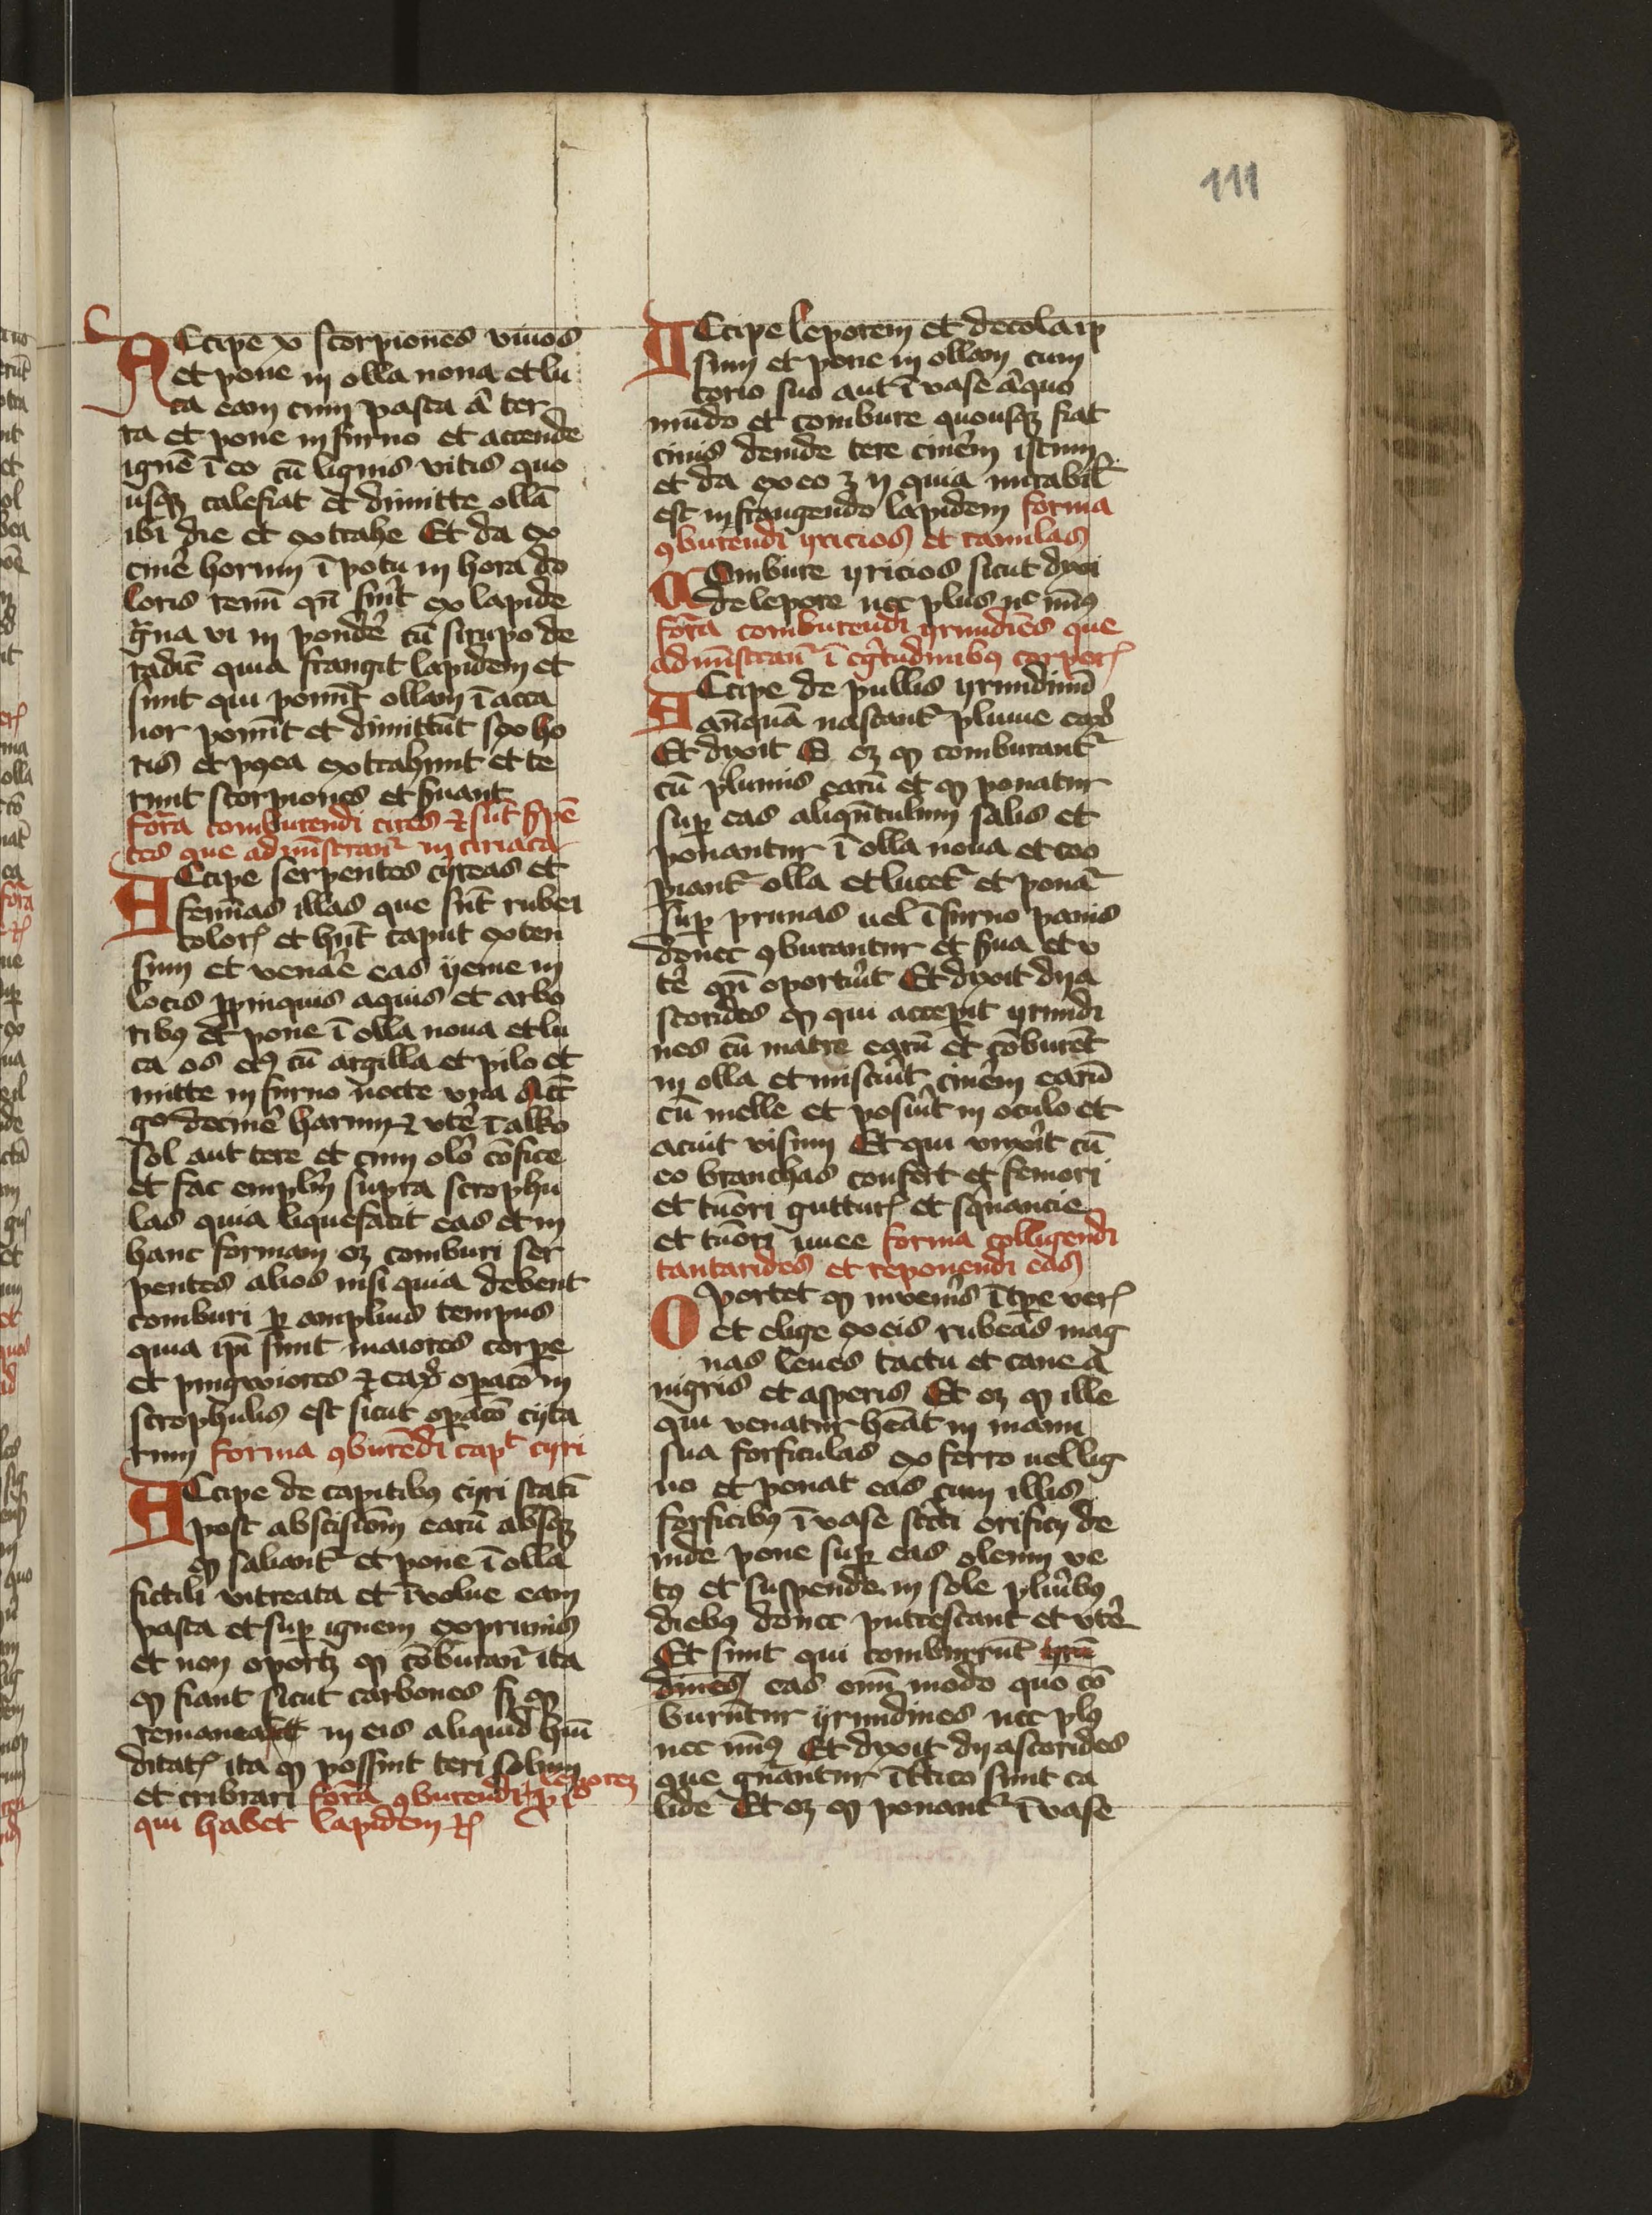 111
ACcipe x scorpiones viuos
et pone in olla noua et lu
ta eam cum pasta a ter
ra et pone in furno et accende
ignē ī eo cū lignis vitis quo
usqȝ calefiat et dimitte ollā
ibi die et extrahe Et da ex
cinē horum ī potu in hora do
loris renū qn̄ fūit ex lapide
grana vi in pondē cū sirupo de
radic̄ quia frangit lapidem et
sunt qui ponūt ollam ī acta
nor ponūt et dimittūt sex ho
ris et postea extrahunt et te
runt scorpiones et s̄uant
forā comburendi cires ⁊ sūt s̄pē
tes que adminīstranr̄ in tiriaca
ACcipe serpentes cyreas et
femīas illas que sūt rubei
colorꝭ et hn̄t caput exten
sum et venare eas yeme in
locis ꝓpinquis aquis et arbo
ribꝰ et pone ī olla noua et lu
ta os eiꝰ cū argilla et pilo et
mitte in furno nocte vna Acc̄
gͦ de cinē harum ⁊ vtē ī alko
sol aut tere et cum oleō cōfice
et fac emplm̄ supra scrophu
las quia liquefacit eas et in
hanc formam oȝ comburi ser
pentes alios nisi quia debent
comburi ꝑ amplius tempus
quia ip̄i sunt maiores corꝑe
et pingwiores ⁊ eaꝝ oꝑacō in
scrophulis est sicut oꝑacō cyta
rum forma ꝯburēdi capͭ cyri
ACcipe de capitibꝰ cyri statī
post abscisiōm earū absqȝ
ꝙ saliantͬ et pone ī olla
fictili vitreata et īuolue eam
pasta et suꝑ ignem ex prunis
et non oportȝ ꝙ cōburanͬ ita
ꝙ fiant sicut carbones sȝ ꝙ
remaneat in eis aliquid hūi
ditatꝭ ita ꝙ possint teri solum
et cribrari forā ꝯburendi leporeȝ
qui habet lapidem ⁊ꝭ
ACcipe leporem et decola ip
sum et pone in ollam cum
corio suo aut ī vase aliquo
mūdo et combure quousqȝ fiat
cinis deinde tere cinerem istum
et da ex eo ʒ ij quia mirabil̄
est in frangendo lapidem forma
ꝯburendi yricios et ranulas
COmbure yricios sicut dixi
de lepore nec plus nͨ minꝰ
forā comburendi yrundines que
adminīstranͬ ī egritudinibꝰ corporꝭ
ACcipe de pullis yrundinū
anīquā nascantͬ plume eaꝝ
Et dixit G oȝ ꝙ comburantͬ
cū plumis earū et ꝙ ponatur
suꝑ eas aliqn̄tulum salis et
ponantur ī olla noua et coo
piantͬ olla et lutetͬ et ponaͬ
suꝑ prunas uel ī furno panis
donec ꝯburantur et s̄ua et v
tē qn̄ oportūit Et dixit dya
scorides ꝙ qui acceꝑit yrundi
nes cū matre earū et cōburēt
in olla et miscūit cinerem earū
cū melle et posūit in oculo et
acuit visum Et qui vnxīt cū
eo branchas confert et femori
et tūori gutturꝭ et sqnancie
et tūori uuee forma colligendi
cantarides et reponendi eas
OPortet ꝙ inuenis ī tꝑe verꝭ
et elige ex eis rubeas mag
nas leues tactu et caue a
nigris et asperis Et oȝ ꝙ ille
qui venatur hēat in manu
sua forficulas ex ferro uel lig
no et ponat eas cum illis
forficibꝰ ī vase stric̄ti orificij de
inde pone suꝑ eas oleum ve
tꝰ et suspende in sole plūibꝰ
diebꝰ donec putrescant et vtē
Et sunt qui comburūt yrū
dines eas eōm modo quo cō
burūtur yrundines nec plꝰ
nec minꝰ Et dixit dyascorides
que gn̄antur ī ttico sunt ca
lide Et oȝ ꝙ ponantͬ ī vase